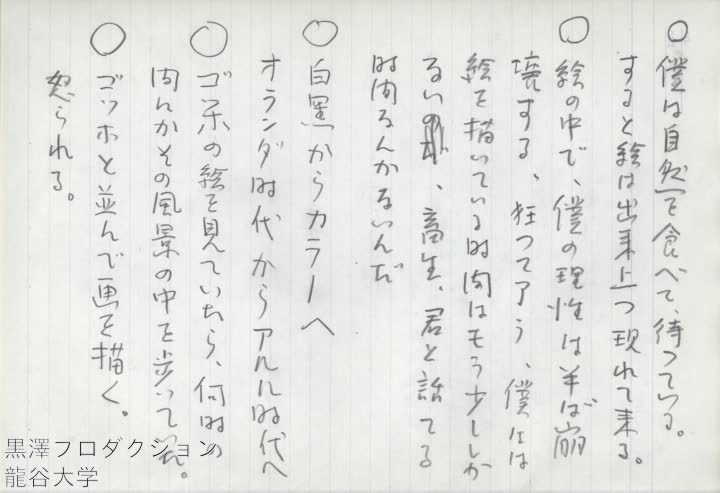 ○ 僕は自然を食べて、待っている。
すると絵は出来上って現れて来る。
○ 絵の中で、僕の理性は半ば崩
壊する、狂って了う、僕には
絵を描いている時間はもう少ししか
ないの、畜生、君と話してる
時間なんかないんだ
○ 白黒からカラーへ
オランダ時代からアルル時代へ
○ ゴッホの絵を見ていたら、何時の
間にかその風景の中を歩いていた。
○ ゴッホと並んで画を描く。
怒られる。
黒澤プロダクション
龍谷大学